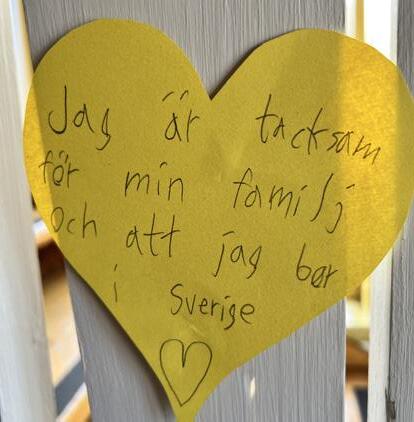 Jag är tacksam
för min familj
och att jag bør
i Sverige